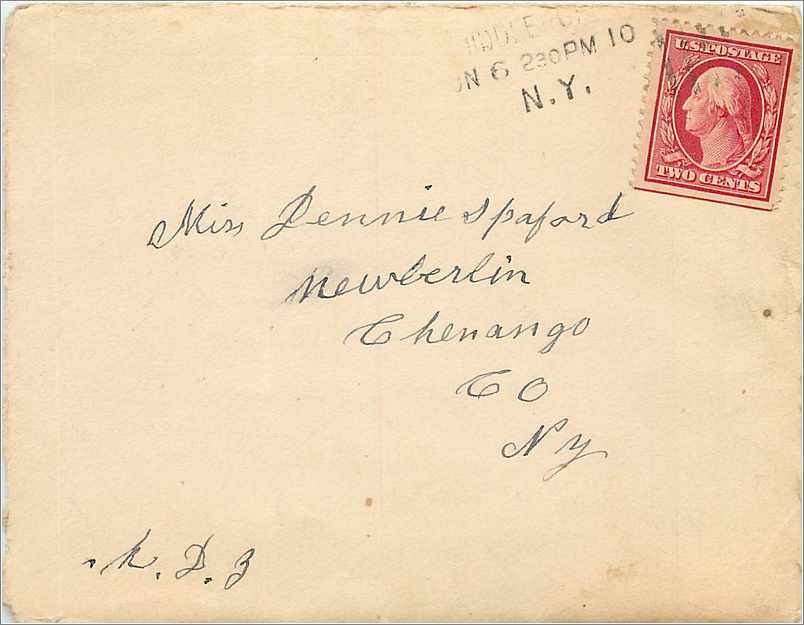 6 230PM 10
N.Y.
U.S. POSTAGE
TWO CENTS
Miss Jennie Spaford
Newberlin
Chenango
Co
Ny
R. D. 3